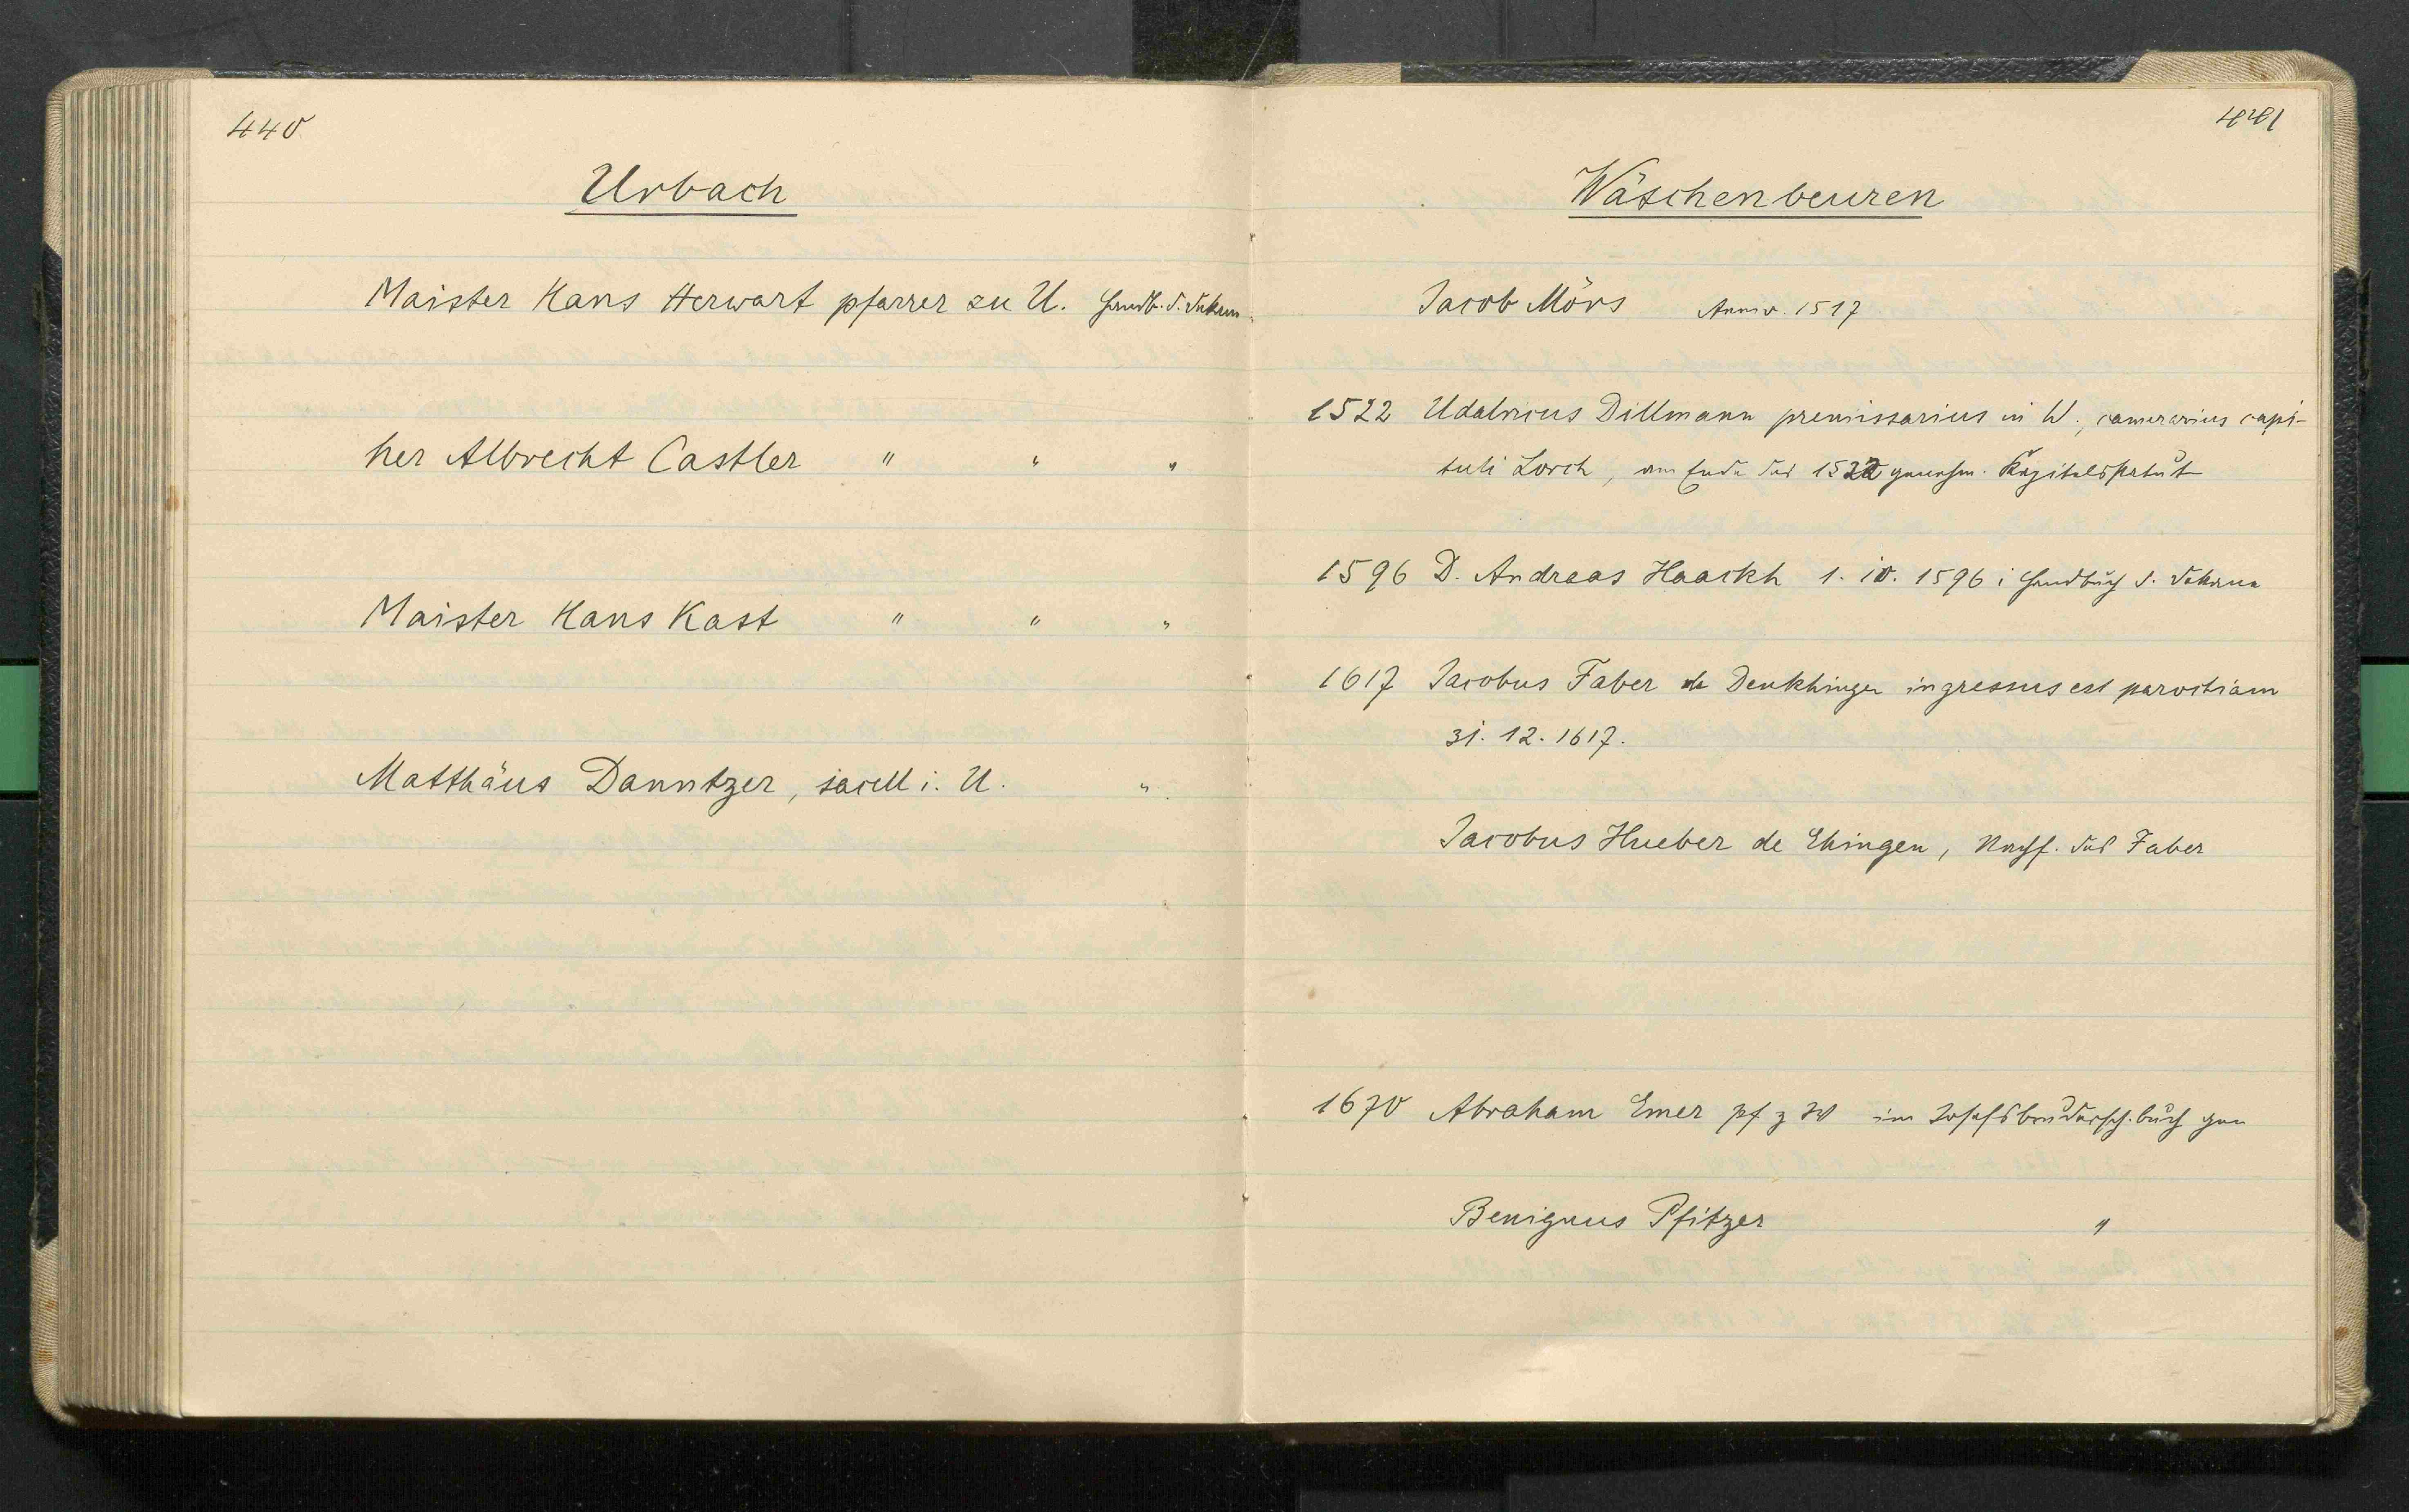 440
Urbach
Maister Hans Herwart pfarrer zu U. Handb. d. Dekan.
her Albrecht Castler " " "
Maister Hans Kast " " "
Matthäus Danntzer, sacell i. U. "
441
Wäschenbeuren
Jacob Mörs Anniv. 1517
1522 Udalricus Dillmann premissarius in W., camerarius capi-
tuli Lorch, am Ende des 1522 genehm. Kapitelstatut
1596 D. Andreas Haackh 1. 10. 1596 i Handbuch d. Dekana
1617 Jacobus Faber de Denkhingen ingressus est parochiam
31. 12. 1617.
Jacobus Hueber de Ehingen, Nachf. des Faber
1670 Abraham Emer pf z W im Josefsbrudersch.buch gen
Benignus Pfitzer "